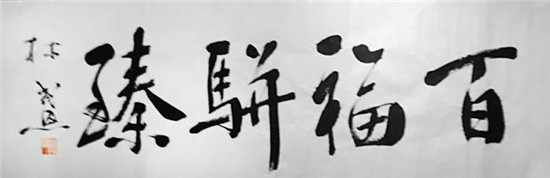 百福駢臻